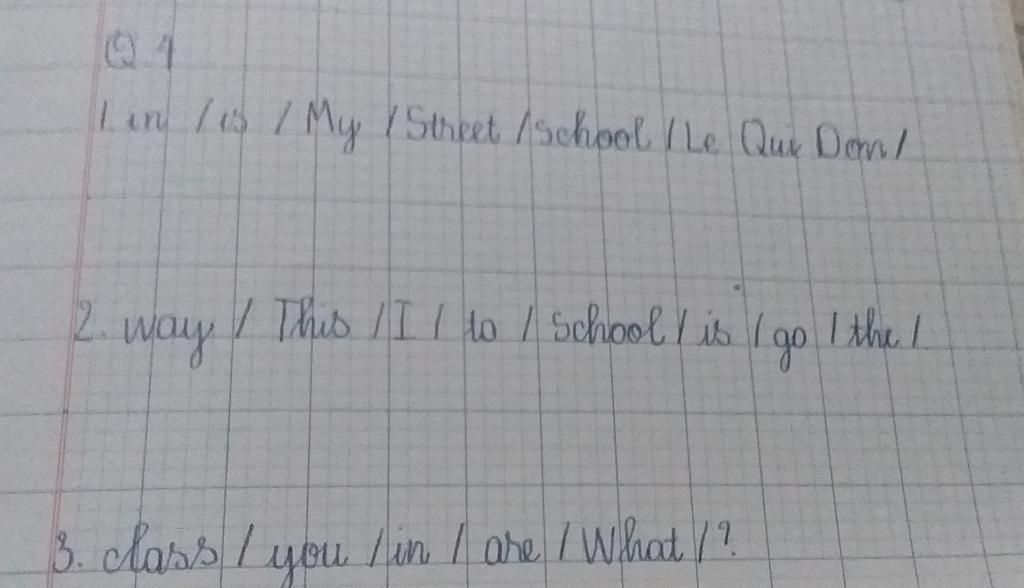 Q.1
1. in / is / My / Street / School / Le Qui Don /
2. way / This / I / to / School / is / go / the /
3. class / you / in / are / What / ?